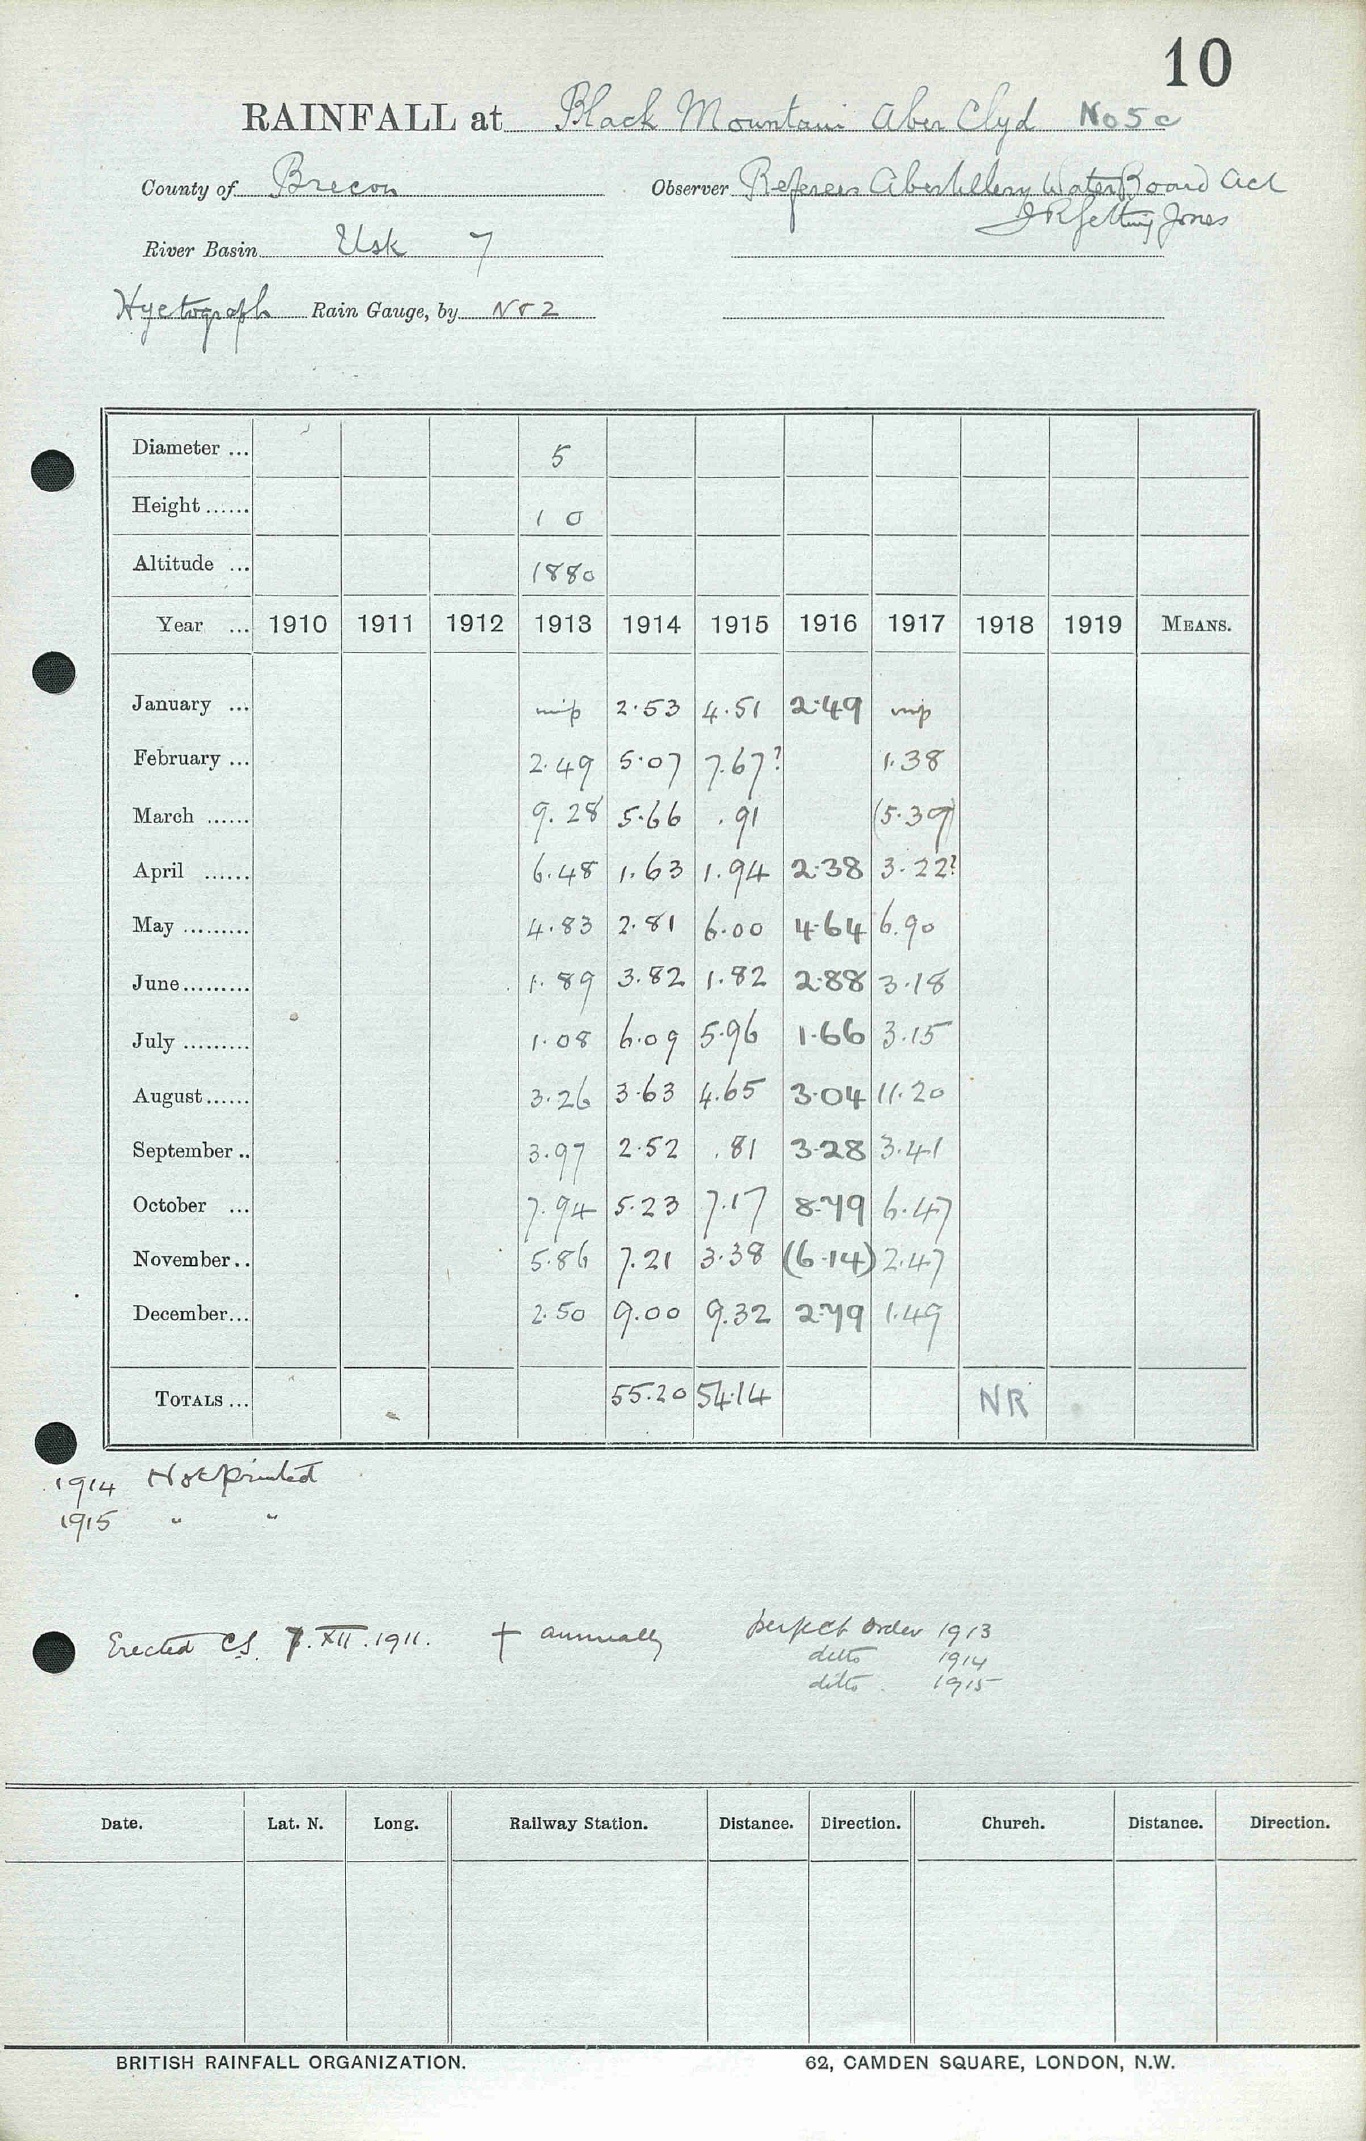 10
RAINFALL at Black Mountain Aber Clyd No 5c
County of Brecon Observer Referees Abertillery Water Board Act
River Basin Usk 7 Jones
Hyetograph Rain Gauge, by No 2
Diameter ... 5
Height ...... 1 0
Altitude ... 1880
Year ... 1910 1911 1912 1913 1914 1915 1916 1917 1918 1919 MEANS.
January ... 2.53 4.51 2.49
February ... 2.49 5.07 7.67? 1.38
March ...... 9.28 5.66 .91 (5.39)
April ...... 6.48 1.63 1.94 2.38 3.22?
May ......... 4.83 2.81 6.00 4.64 6.90
June ......... 1.89 3.82 1.82 2.88 3.18
July ......... 1.08 6.09 5.96 1.66 3.15
August ...... 3.26 3.63 4.65 3.04 11.20
September .. 3.97 2.52 .81 3.28 3.41
October ... 7.94 5.23 7.17 8.79 6.47
November .. 5.86 7.21 3.38 (6.14) 2.47
December ... 2.50 9.00 9.32 2.79 1.49
TOTALS ... 55.20 54.14 NR
1914 Not printed
1915 " "
Erected CS. 7.XII.1911. † annually perfect order 1913
ditto 1914
ditto 1915
Date. Lat. N. Long. Railway Station. Distance. Direction. Church. Distance. Direction.
BRITISH RAINFALL ORGANIZATION. 62, CAMDEN SQUARE, LONDON, N.W.